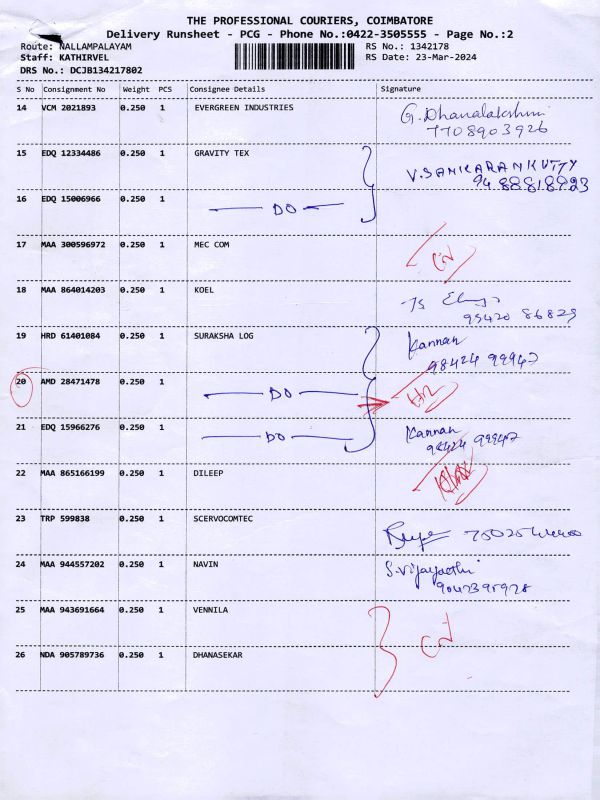 THE PROFESSIONAL COURIERS, COIMBATORE
Delivery Runsheet - PCG - Phone No.:0422-3505555 - Page No.:2
Route: NALLAMPALAYAM RS No.: 1342178
Staff: KATHIRVEL RS Date: 23-Mar-2024
DRS No.: DCJB134217802
S No Consignment No Weight PCS Consignee Details Signature
14 VCM 2021893 0.250 1 EVERGREEN INDUSTRIES G. Dhanalakshmi
7708903926
15 EDQ 12334486 0.250 1 GRAVITY TEX V. SANKARANKUTTY
94 88818923
16 EDQ 15006966 0.250 1 DO
17 MAA 300596972 0.250 1 MEC COM
18 MAA 864014203 0.250 1 KOEL
95420 86829
19 HRD 61401084 0.250 1 SURAKSHA LOG Kannan
98424 99942
20 AMD 28471478 0.250 1 DO
21 EDQ 15966276 0.250 1 DO Kannan
98424 99942
22 MAA 865166199 0.250 1 DILEEP
23 TRP 599838 0.250 1 SCERVOCOMTEC
24 MAA 944557202 0.250 1 NAVIN S. Vijayasthi
9042395928
25 MAA 943691664 0.250 1 VENNILA
26 NDA 905789736 0.250 1 DHANASEKAR